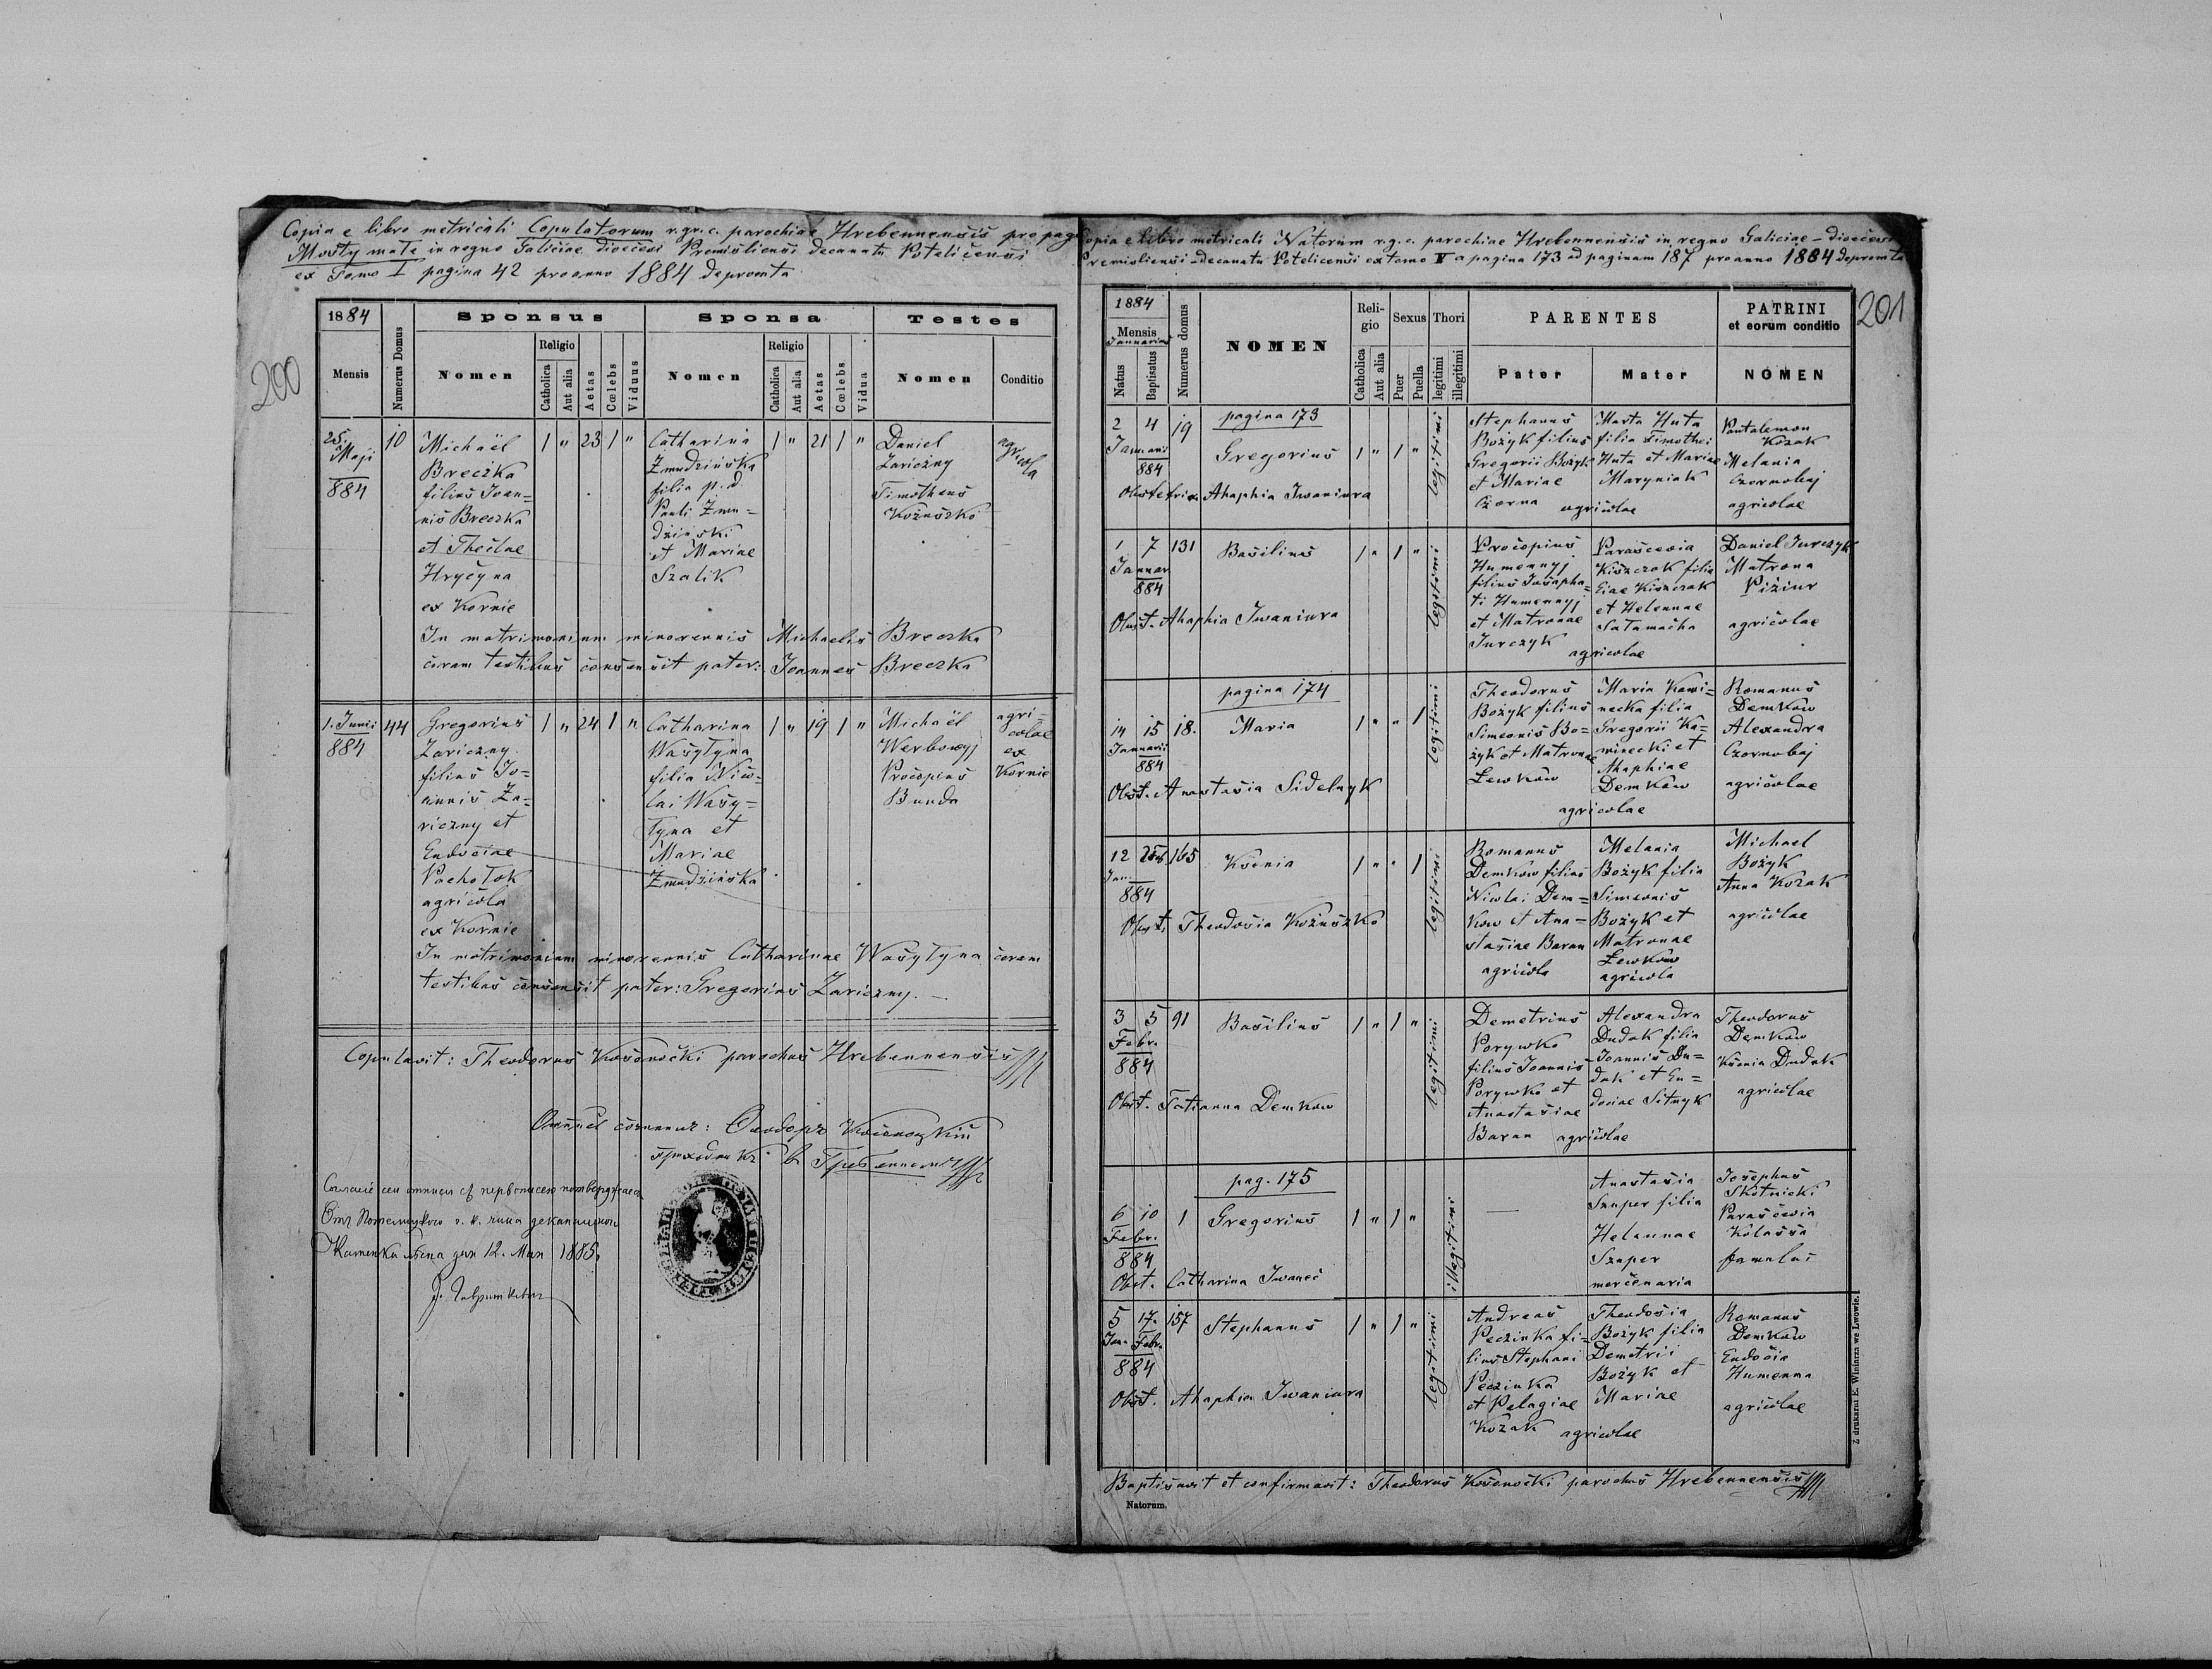 Copia e libro metricali Copulatorum r.gr.c. parochiae Hrebennensis pro pago
Mosty małe in regno Galiciae dioecesi Premisliensi decanatu Poteličensi
ex Tomo I pagina 42 pro anno 1884 deprompta
200
1884
Mensis
Numerus Domus
Sponsus
Nomen
Religio
Catholica
Aut alia
Aetas
Cœlebs
Viduus
Sponsa
Nomen
Religio
Catholica
Aut alia
Aetas
Cœlebs
Vidua
Testes
Nomen
Conditio
25. Maji 884
10
Michaël
Breczka
filius Joan=
nis Breczka
et Theclae
Hryčyna
ex Kornie
1 " 23 1 "
Catharina
Żmudzińska
filia p.d.
Pauli Żmu=
dziński
et Mariae
Szalik
1 " 21 1 "
Daniel
Zariczny
Timotheus
Kożuszko
agricola
In matrimonium minorennis Michaelis Breczka
coram testibus consensit pater: Joannes Breczka
1. Junii 884
44
Gregorius
Zariczny
filius Jo=
annis Za=
riczny et
Eudociae
Pachołok
agricola
ex Kornie
1 " 24 1 "
Catharina
Wasyłyna
filia Nico=
lai Wasy=
łyna et
Mariae
Żmudzińska
1 " 19 1 "
Michaël
Werbowyj
Procopius
Bunda
agri=
colae
ex
Kornie
In matrimonium minorennis Catharinae Wasyłyna coram
testibus consensit pater: Gregorius Zariczny. —
Copulavit: Theodorus Kosonocki parochus Hrebennensis
въ Гребенномъ
12. Мая 1885
Copia e libro metricali Natorum r.g.c. parochiae Hrebennensis in regno Galiciae – dioecesi
Premisliensi – decanatu Potelicensi ex tomo V a pagina 173 ad paginam 187 pro anno 1884 deprompta
201
1884
Mensis
Januarius
Natus
Baptisatus
Numerus domus
NOMEN
Reli-
gio
Catholica
Aut alia
Sexus
Puer
Puella
Thori
legitimi
illegitimi
PARENTES
Pater
Mater
PATRINI
et eorum conditio
NOMEN
pagina 173
2 4 19
Januarii
884
Gregorius
1 " 1 "
legitimi
Stephanus
Bożyk filius
Gregorii Bożyk
et Mariae
Czorna
Marta Huta
filia Timothei
Huta et Mariae
Maryniak
agricolae
Pantalemon
Kozak
Melania
Czornobaj
agricolae
Obstetrix Ahaphia Iwaniura
1 7 131
Januar.
884
Basilius
1 " 1 "
legitimi
Procopius
Humennyj
filius Josapha=
ti Humennyj
et Matronae
Jurczyk
Parascevia
Kiszczak filia
Eliae Kiszczak
et Helennae
Sałamacha
agricolae
Daniel Jurczyk
Matrona
Piziur
agricolae
Obst. Ahaphia Iwaniura
pagina 174
14 15 18.
Januarii
884
Maria
1 " " 1
legitimi
Theodorus
Bożyk filius
Simeonis Bo=
żyk et Matronae
Łewków
Maria Kami=
necka filia
Gregorii Ka=
minecki et
Ahaphiae
Demków
agricolae
Romanus
Demków
Alexandra
Czornobaj
agricolae
Obst. Anastasia Sidelnyk
12 165
Jan.
884
Ksenia
1 " " 1
legitimi
Romanus
Demkow filius
Nicolai Dem=
kow et Ana=
stasiae Baran
agricola
Melania
Bożyk filia
Simeonis
Bożyk et
Matronae
Łewków
agricola
Michael
Bożyk
Anna Kozak
agricolae
Obst. Theodosia Kożuszko
3 5 91
Febr.
884
Basilius
1 " 1 "
legitimi
Demetrius
Porywko
filius Joannis
Porywko et
Anastasiae
Baran
Alexandra
Dudak filia
Joannis Du=
dak et Eu=
dociae Sitnyk
agricolae
Theodorus
Demków
Ksenia Dudak
agricolae
Obst. Tatianna Demkow
pag. 175
6 10 1
Febr.
884
Gregorius
1 " 1 "
illegitimi
—
Anastasia
Szaper filia
Helennae
Szaper
mercenaria
Josephus
Skotnicki
Parascevia
Kolassa
famulus
Obst. Catharina Iwanec
5 17. 157
Jan. Febr.
884
Stephanus
1 " 1 "
legitimi
Andreas
Peczinka fi=
lius Stephani
Peczinka
et Pelagiae
Kozak
Theodosia
Bożyk filia
Demetrii
Bożyk et
Mariae
agricolae
Romanus
Demków
Eudocia
Humenna
agricolae
Obst. Ahaphia Iwaniura
Baptisavit et confirmavit: Theodorus Kosonocki parochus Hrebennensis
Natorum.
Z drukarni E. Winiarza we Lwowie.